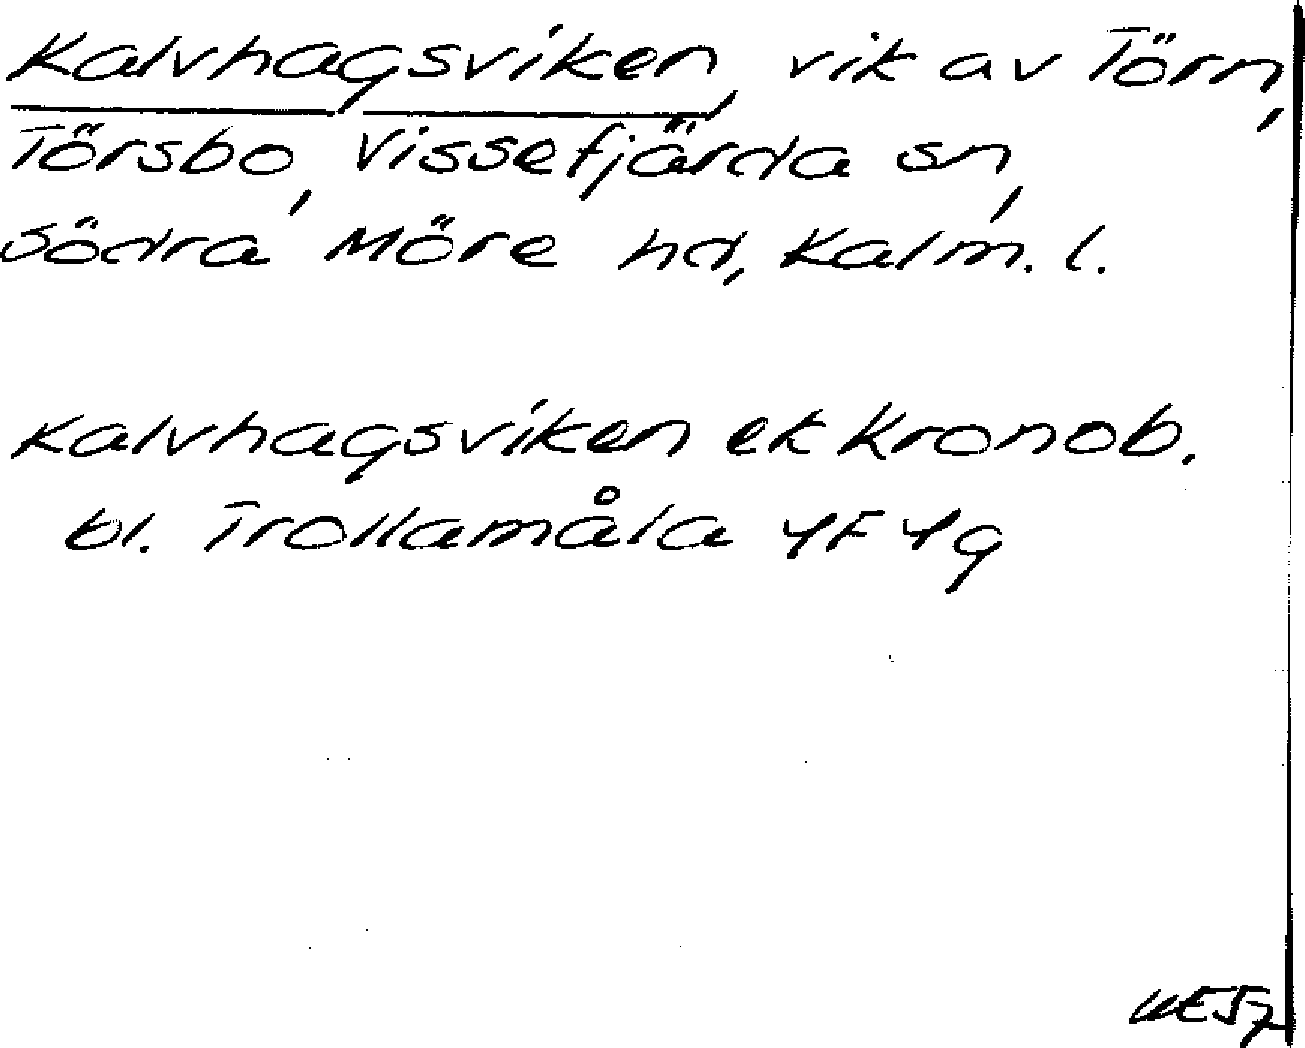 Kalvhagsviken, vik av Törn,
Törsbo, Vissefjärda sn,
Södra Möre hd, Kalm. l.
Kalvhagsviken ek Kronob.
bl. Trollamåla 4F 4g